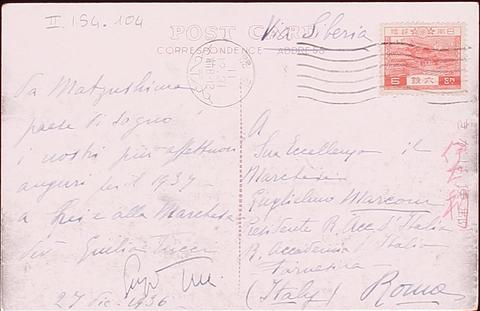 II. 184. 104
POST CARD
CORRESPONDENCE ADDRESS
Via Siberia
6 六銭 Sn
Da Matzushima
paese di sogno
i nostri più affettuosi
auguri per il 1937
a Lei e alla Marchesa
Giulia Tucci
27 Dic. 1936
A
Sua Eccellenza il
Marchese
Guglielmo Marconi
Presidente R. Acc. d'Italia
R. Accademia d'Italia
Farnesina
(Italy) Roma